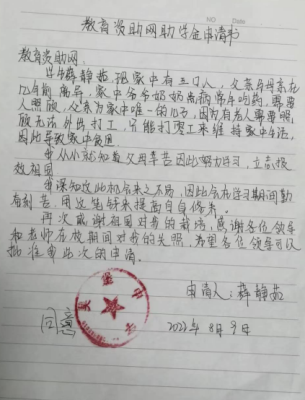 NO
Date
教育资助网助学金申请书
教育资助网:
我叫薛静茹 现家中有五口人,父亲与母亲在
几年前 离异,家中爷爷奶奶患病常年吃药,需要
人照顾,父亲为家中唯一的 因为有老人需要照
顾无法外出打工,只能打零工来维持家中生活,
因此导致家中贫困
我从小就知道父母辛苦因此努力学习,立志报
效祖国
我深知这此机会来之不易,因此会在学习期间勤
奋刻苦 用这笔钱来提高自身修养。
再次感谢祖国对我的栽培,感谢各位领导
和老师在校期间对我的关照,希望各位领导可以
批准我此次的申请。
申请人:薛静茹
同意
2022年8月9日